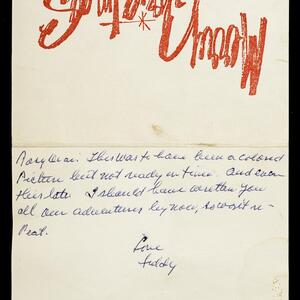 Merry Christmas
Rosy Mrai. This was to have been a colored
Picture but not ready in time. And even
this late. I should have written you
all our adventures by now, so wont re-
peat.
Love
Teddy